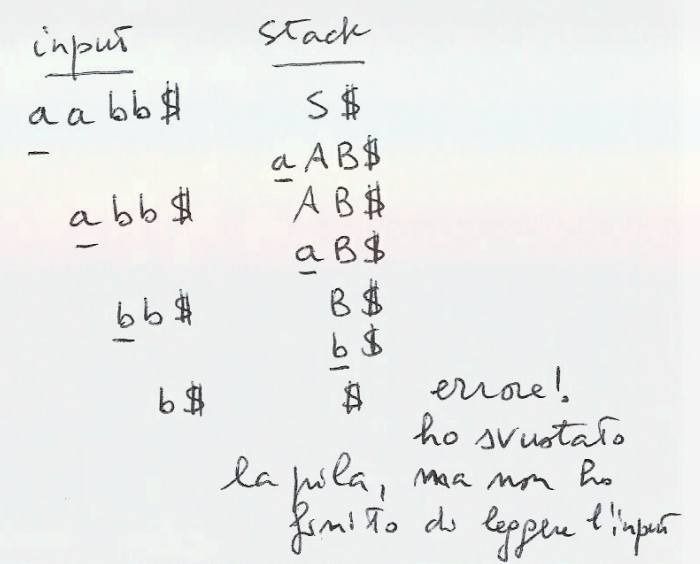 input stack
aabb$ S$
aAB$
abb$ AB$
aB$
bb$ B$
b$
b$ $ errore!
ho svuotato
la pila, ma non ho
finito di leggere l'input